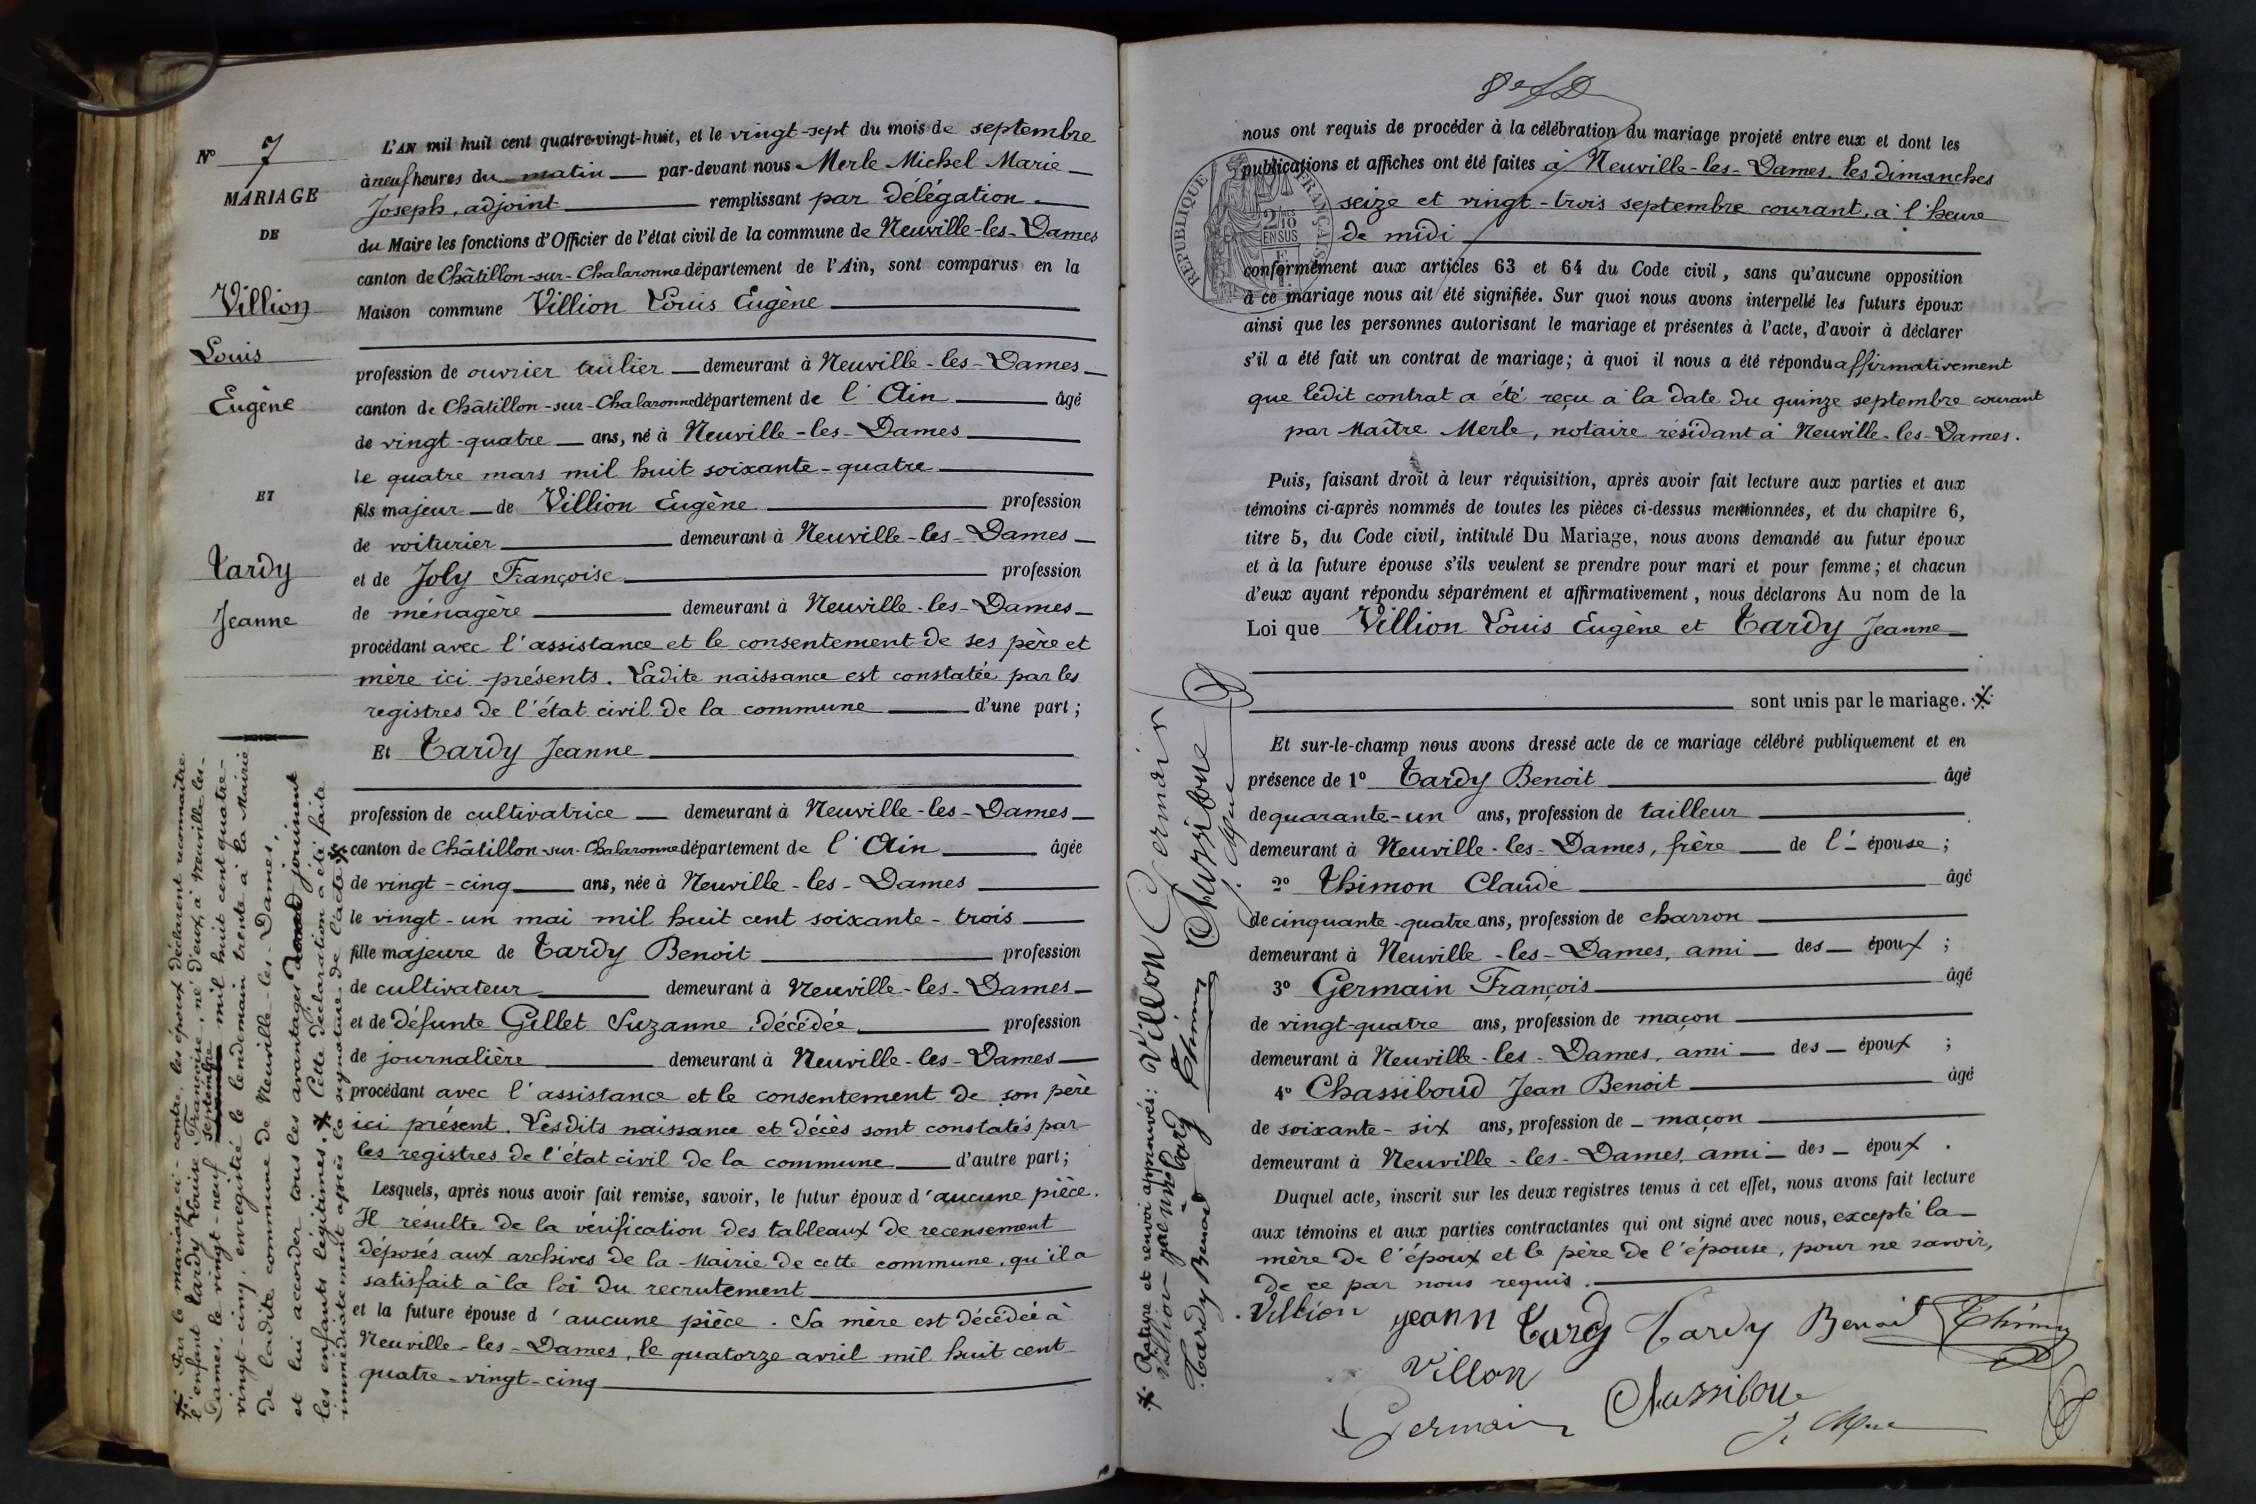 Nº 7
MARIAGE
DE
Villion
Louis
Eugène
ET
Tardy
Jeanne
L'AN mil huit cent quatre-vingt-huit, et le vingt-sept du mois de septembre
à neuf heures du matin par-devant nous Merle Michel Marie
Joseph, adjoint remplissant par délégation
du Maire les fonctions d'Officier de l'état civil de la commune de Neuville-les-Dames
canton de Châtillon-sur-Chalaronne département de l'Ain, sont comparus en la
Maison commune Villion Louis Eugène
profession de ouvrier tuilier demeurant à Neuville-les-Dames
canton de Châtillon-sur-Chalaronne département de l'Ain âgé
de vingt-quatre ans, né à Neuville-les-Dames
le quatre mars mil huit soixante-quatre
fils majeur de Villion Eugène profession
de voiturier demeurant à Neuville-les-Dames
et de Joly Françoise profession
de ménagère demeurant à Neuville-les-Dames
procédant avec l'assistance et le consentement de ses père et
mère ici présents. Ladite naissance est constatée par les
registres de l'état civil de la commune d'une part;
Et Tardy Jeanne
profession de cultivatrice demeurant à Neuville-les-Dames
canton de Châtillon-sur-Chalaronne département de l'Ain âgée
de vingt-cinq ans, née à Neuville-les-Dames
le vingt-un mai mil huit cent soixante-trois
fille majeure de Tardy Benoit profession
de cultivateur demeurant à Neuville-les-Dames
et de défunte Gillet Suzanne, décédée profession
de journalière demeurant à Neuville-les-Dames
procédant avec l'assistance et le consentement de son père
ici présent. Lesdits naissance et décès sont constatés par
les registres de l'état civil de la commune d'autre part;
Lesquels, après nous avoir fait remise, savoir, le futur époux d'aucune pièce.
Il résulte de la vérification des tableaux de recensement
déposés aux archives de la Mairie de cette commune, qu'il a
satisfait à la loi du recrutement
et la future épouse d'aucune pièce. Sa mère est décédée à
Neuville-les-Dames, le quatorze avril mil huit cent
quatre-vingt-cinq
Par le mariage ci-contre, les époux déclarent reconnaître
l'enfant Tardy Louise Françoise, né d'eux, à Neuville-les-
Dames, le vingt-neuf septembre mil huit cent quatre-
vingt-cinq, enregistré le lendemain trente à la Mairie
de ladite commune de Neuville-les-Dames,
et lui accorder tous les avantages dont jouissent
les enfants légitimes. Cette déclaration a été faite
immédiatement après la signature de l'acte.
nous ont requis de procéder à la célébration du mariage projeté entre eux et dont les
publications et affiches ont été faites à Neuville-les-Dames, les dimanches
seize et vingt-trois septembre courant, à l'heure
de midi
RÉPUBLIQUE FRANÇAISE
2/10
EN SUS
conformément aux articles 63 et 64 du Code civil, sans qu'aucune opposition
à ce mariage nous ait été signifiée. Sur quoi nous avons interpellé les futurs époux
ainsi que les personnes autorisant le mariage et présentes à l'acte, d'avoir à déclarer
s'il a été fait un contrat de mariage; à quoi il nous a été répondu affirmativement
que ledit contrat a été reçu à la date du quinze septembre courant
par Maître Merle, notaire résidant à Neuville-les-Dames.
Puis, faisant droit à leur réquisition, après avoir fait lecture aux parties et aux
témoins ci-après nommés de toutes les pièces ci-dessus mentionnées, et du chapitre 6,
titre 5, du Code civil, intitulé Du Mariage, nous avons demandé au futur époux
et à la future épouse s'ils veulent se prendre pour mari et pour femme; et chacun
d'eux ayant répondu séparément et affirmativement, nous déclarons Au nom de la
Loi que Villion Louis Eugène et Tardy Jeanne
sont unis par le mariage.
Et sur-le-champ nous avons dressé acte de ce mariage célébré publiquement et en
présence de 1º Tardy Benoit âgé
de quarante-un ans, profession de tailleur
demeurant à Neuville-les-Dames, frère de l'épouse;
2º Thimon Claude âgé
de cinquante-quatre ans, profession de charron
demeurant à Neuville-les-Dames, ami des époux;
3º Germain François âgé
de vingt-quatre ans, profession de maçon
demeurant à Neuville-les-Dames, ami des époux;
4º Chassiboud Jean Benoit âgé
de soixante-six ans, profession de maçon
demeurant à Neuville-les-Dames, ami des époux.
Duquel acte, inscrit sur les deux registres tenus à cet effet, nous avons fait lecture
aux témoins et aux parties contractantes qui ont signé avec nous, excepté la
mère de l'époux et le père de l'épouse, pour ne savoir,
de ce par nous requis.
Villion Jeann Tardy Tardy Benoit Thimon
Villon
Germain Chassibou
Rature et renvoi approuvés: Villon Germain
Villion
Tardy Benoit Thimon Chassiboue